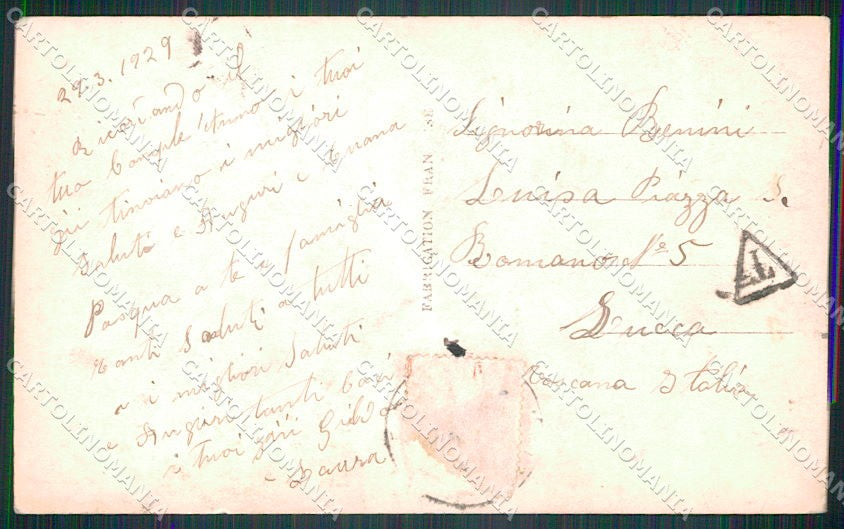 29.3.1929
Ricordando il
tuo Comple'Anno i tuoi
zii t'inviano i migliori
Saluti e Auguri e buona
Pasqua a te e famiglia
tanti Saluti a tutti
e i migliori Saluti
e Auguri tanti baci
i tuoi zii Gildo
e Laura
FABRICATION FRAN SE
Signorina Benini
Luisa Piazza S.
Romano N.e 5
Lucca
Toscana Italia
T
CARTOLINOMANIA